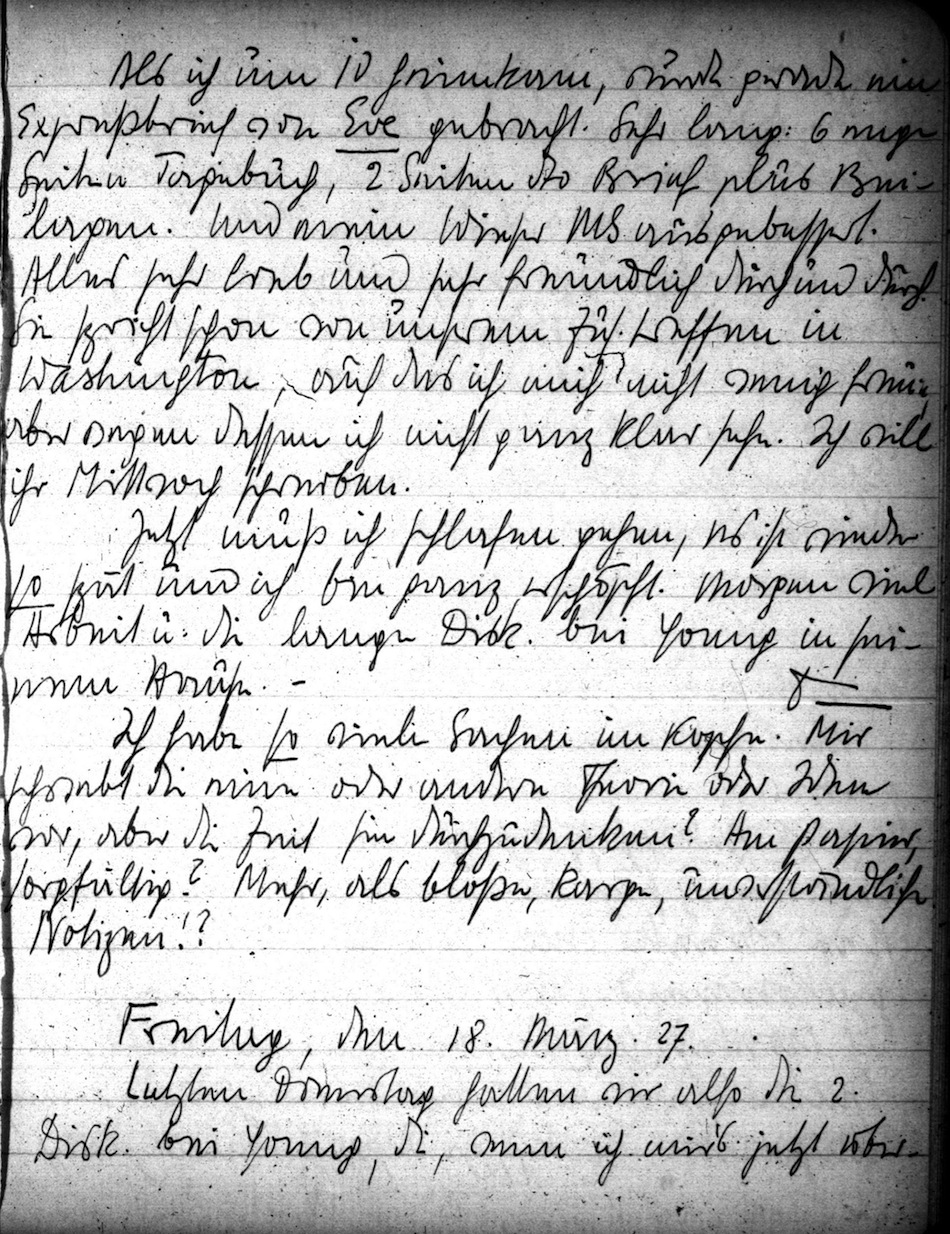 Als ich um 10 heimkam, wurde gerade ein
Expreßbrief von Eve gebracht. Sehr lang: 6 enge
Seiten Tagebuch, 2 Seiten dto Brief plus Bei-
lagen. Und mein Wiener MS ausgebessert.
Alles sehr lieb und sehr freundlich durch und durch.
Sie spricht schon von unserem Zus.treffen in
Washington, auf das ich mich nicht wenig freue,
aber wegen dessen ich nicht ganz klar sehe. Ich will
ihr Mittwoch schreiben.
Jetzt muß ich schlafen gehen, es ist wieder
so spät und ich bin ganz erschöpft. Morgen viel
Arbeit u. die lange Disk. bei Young in sei-
nem Hause. –
Ich habe so viele Sachen im Kopfe. Mir
schwebt die eine oder andere Theorie oder Idee
vor, aber die Zeit sie durchzudenken? Am Papier,
sorgfältig? Mehr, als bloße, karge, unverständliche
Notizen!?
Freitag, den 18. März. 27.
Letzten Dienstag hatten wir also die 2.
Disk. bei Young, die, wenn ich mir's jetzt über-